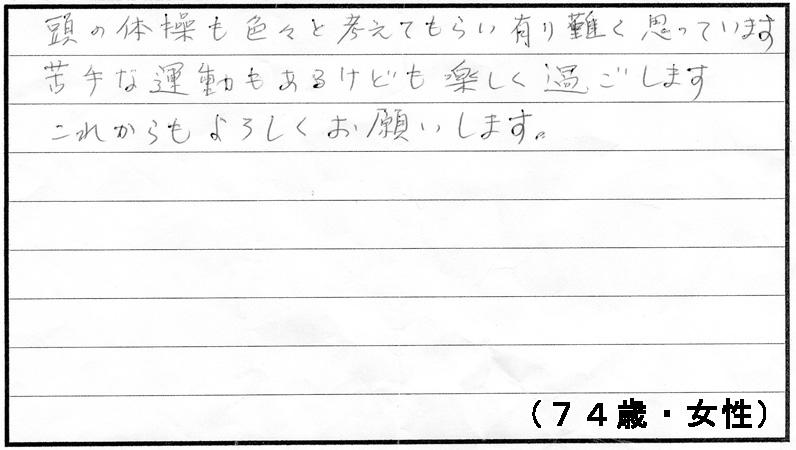 頭の体操も色々と考えてもらい有り難く思っています
苦手な運動もあるけども楽しく過ごします
これからもよろしくお願いします。
（７４歳・女性）